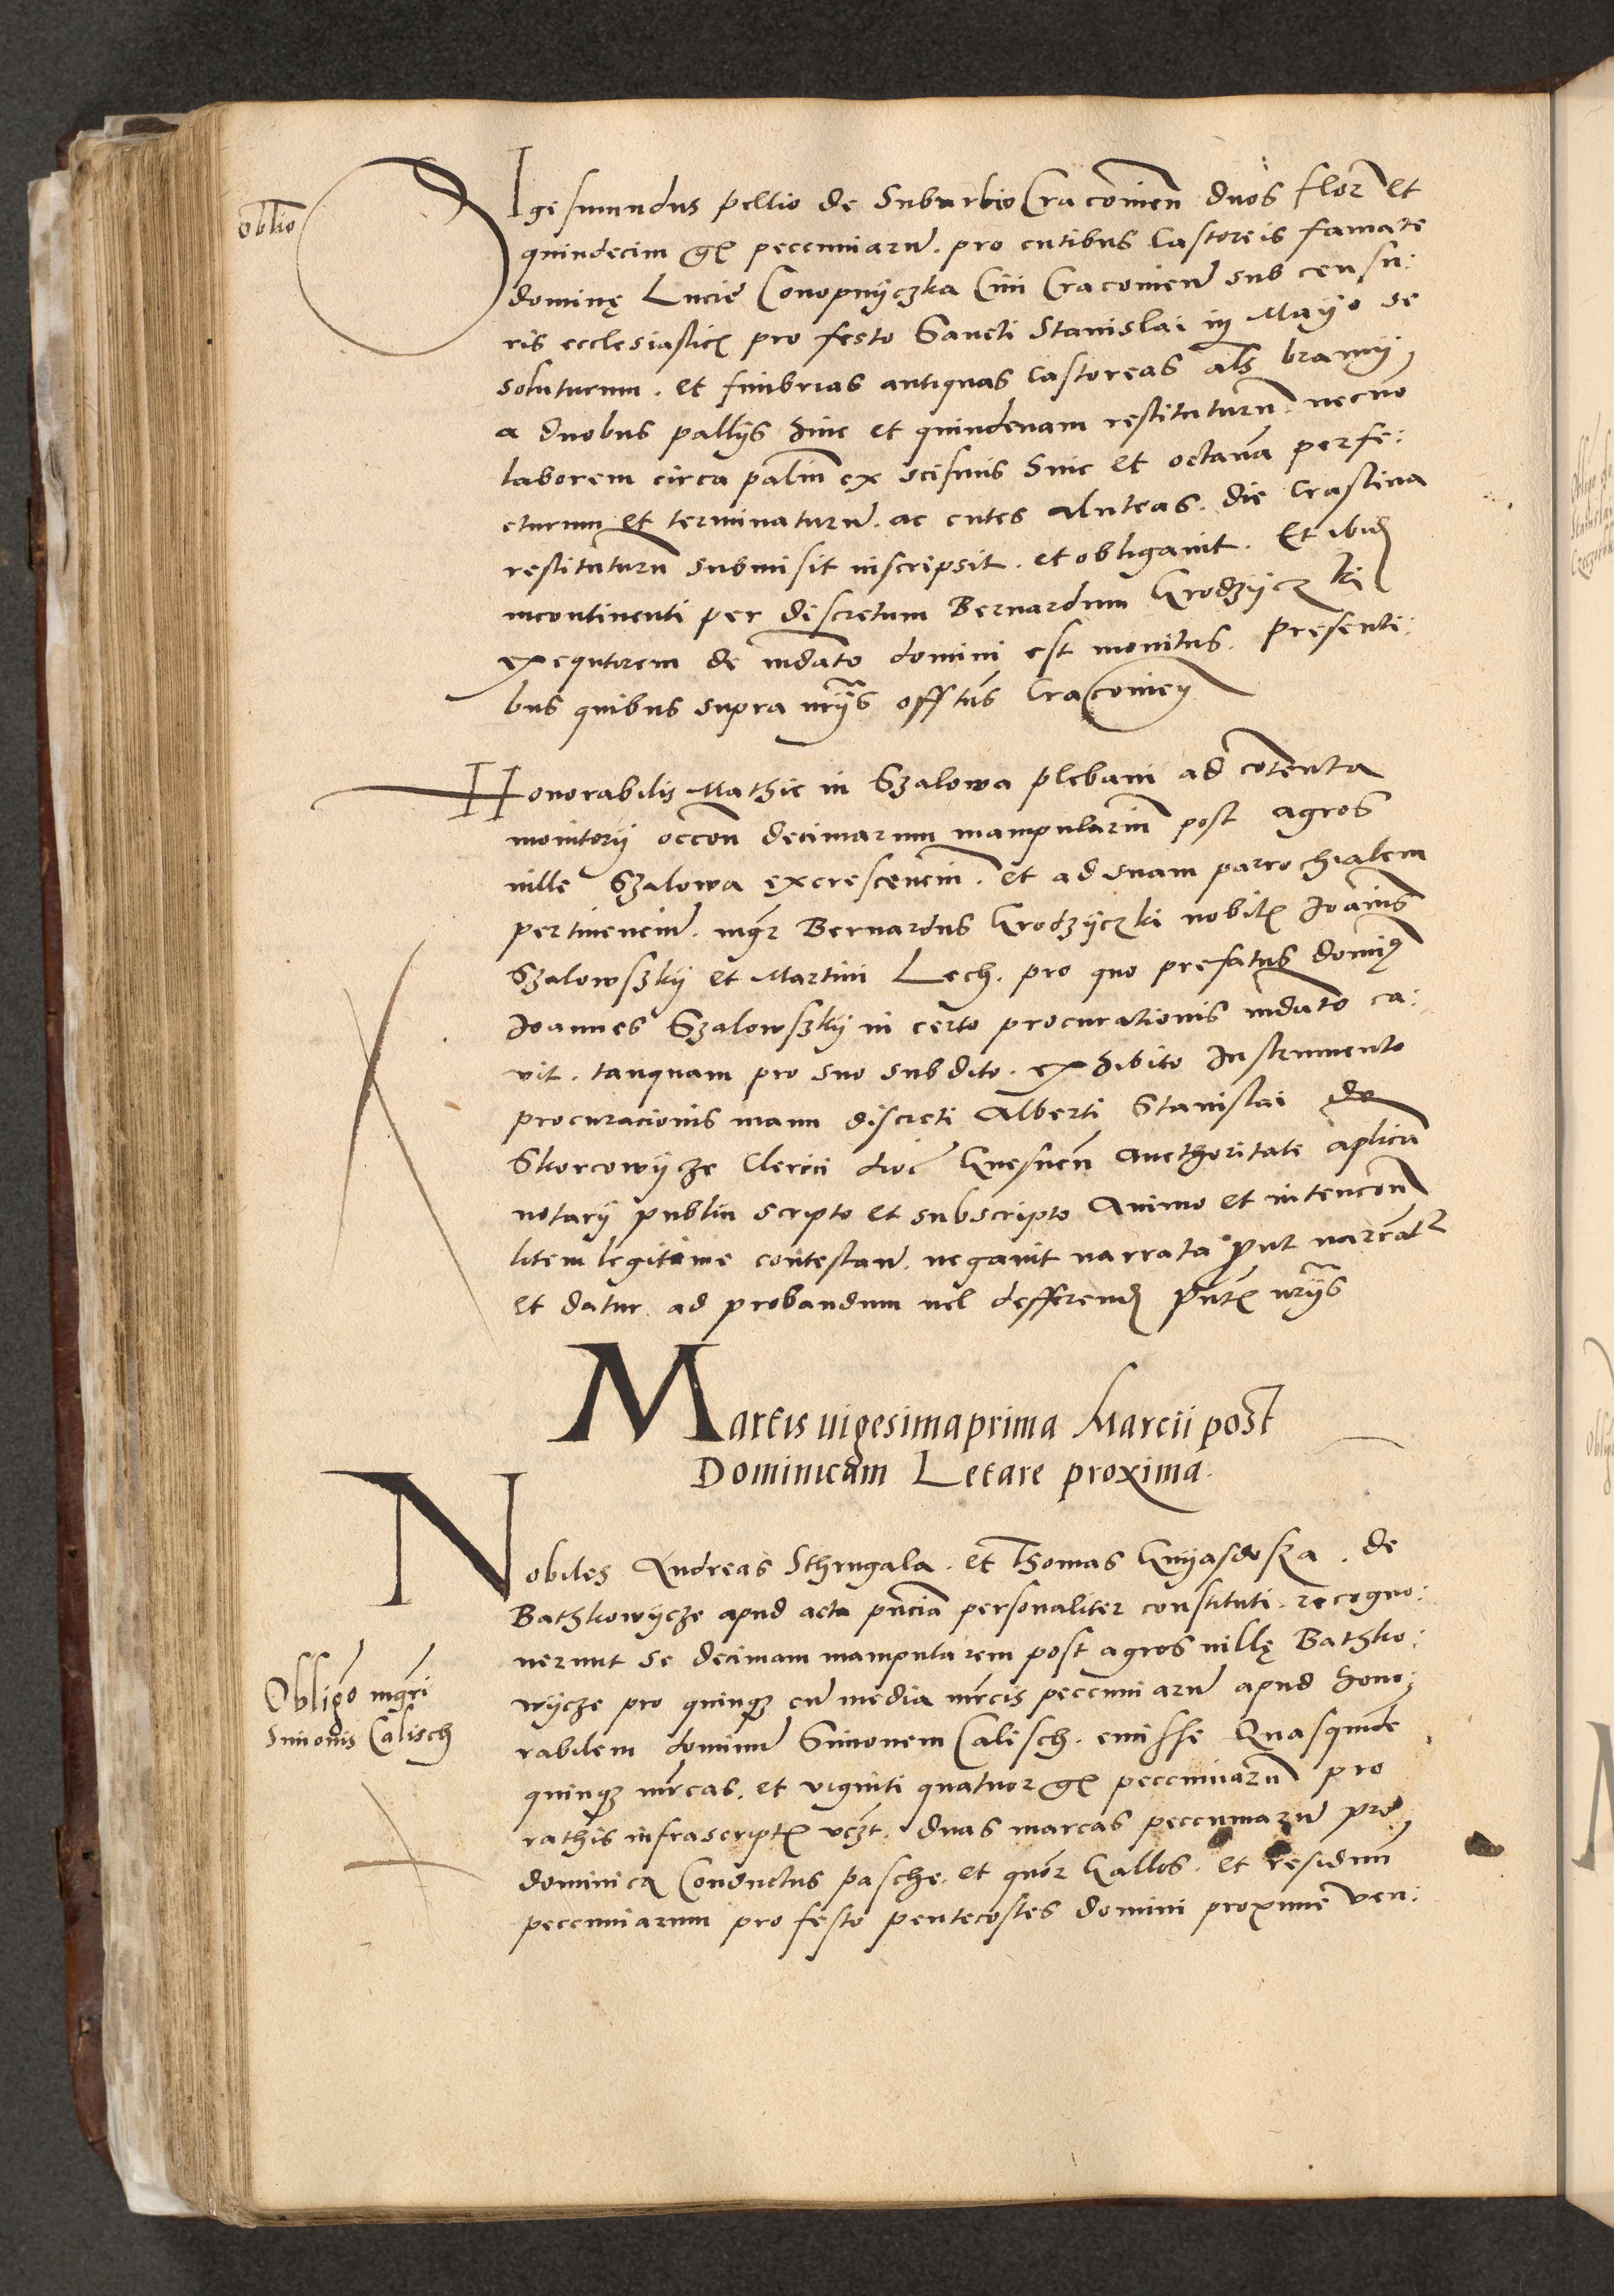 Oblio
Sigesmundus pellio de Suburbio Cracovien duos flor et
quindecim gr peccuniarum. pro cutibus Castoreis famate
dominę Lucie Conopnÿczka Civi Cracovien sub censu:
ris ecclesiastic pro festo Sancti Stanislai in Mayo se
soluturum. et fimbrias antiquas Castoreas als bramÿ
a duobus pallÿs hinc et quindenam restituturum necno
laborem circa palium ex scismis hinc et octavam perfe:
cturum et terminaturum. ac cutes aluteas. die Crastina
restituturum submisit inscripsit. et obligavit. Et ibidem
incontinenti per discretum Bernardum Grodzÿczki
exequtorem de mdato domini est monitus. presenti:
bus quibus supra nrÿs offtus Cracovien
Honorabilis Mathie in Szalowa plebani ad contenta
monitorÿ occon decimarum manipularium post agros
ville Szalowa excrescencium. et ad suam parrochialem
pertinencium. mgr Bernardus Grodzÿczki nobil Joannis
Szalowskÿ et Martini Lech. pro quo prefatus dominus
Joannes Szalowszkÿ in certo procurationis mdato ca:
vit. tanquam pro suo subdito. exhibito Instrumento
procuracionis manu discreti Alberti Stanislai de
Skorcowÿcze Clerici dioc Gnesnen Aucthoritate aplica
notarÿ publici scripto et subscripto Animo et intencon
litem legitime contestan. negavit narrata prout narrantur
et datur ad probandum vel defferend pntibus nrÿs
Martis vigesimaprima Marcii post
Dominicam Letare proxima.
Nobiles Andreas Sthrugala. et Thomas Gnÿasdoska. de
Bathkowÿcze apud acta pncia personaliter constituti. recogno:
verunt se decimam manipularem post agros villę Bathko:
wÿcze pro quinque cum media mrcis peccuniarum apud hono:
rabilem dominum Simonem Calisch. emisse Quasquidem
quinque mrcas. et viginti quatuor gr peccuniarum pro
rathis infrascript vczt. duas marcas peccuniarum pro
dominica Conductus pasche. et quor Gallos. et residuum
peccuniarum pro festo pentecostes domini proxime ven:
Obligo mgri
Simonis Calisch